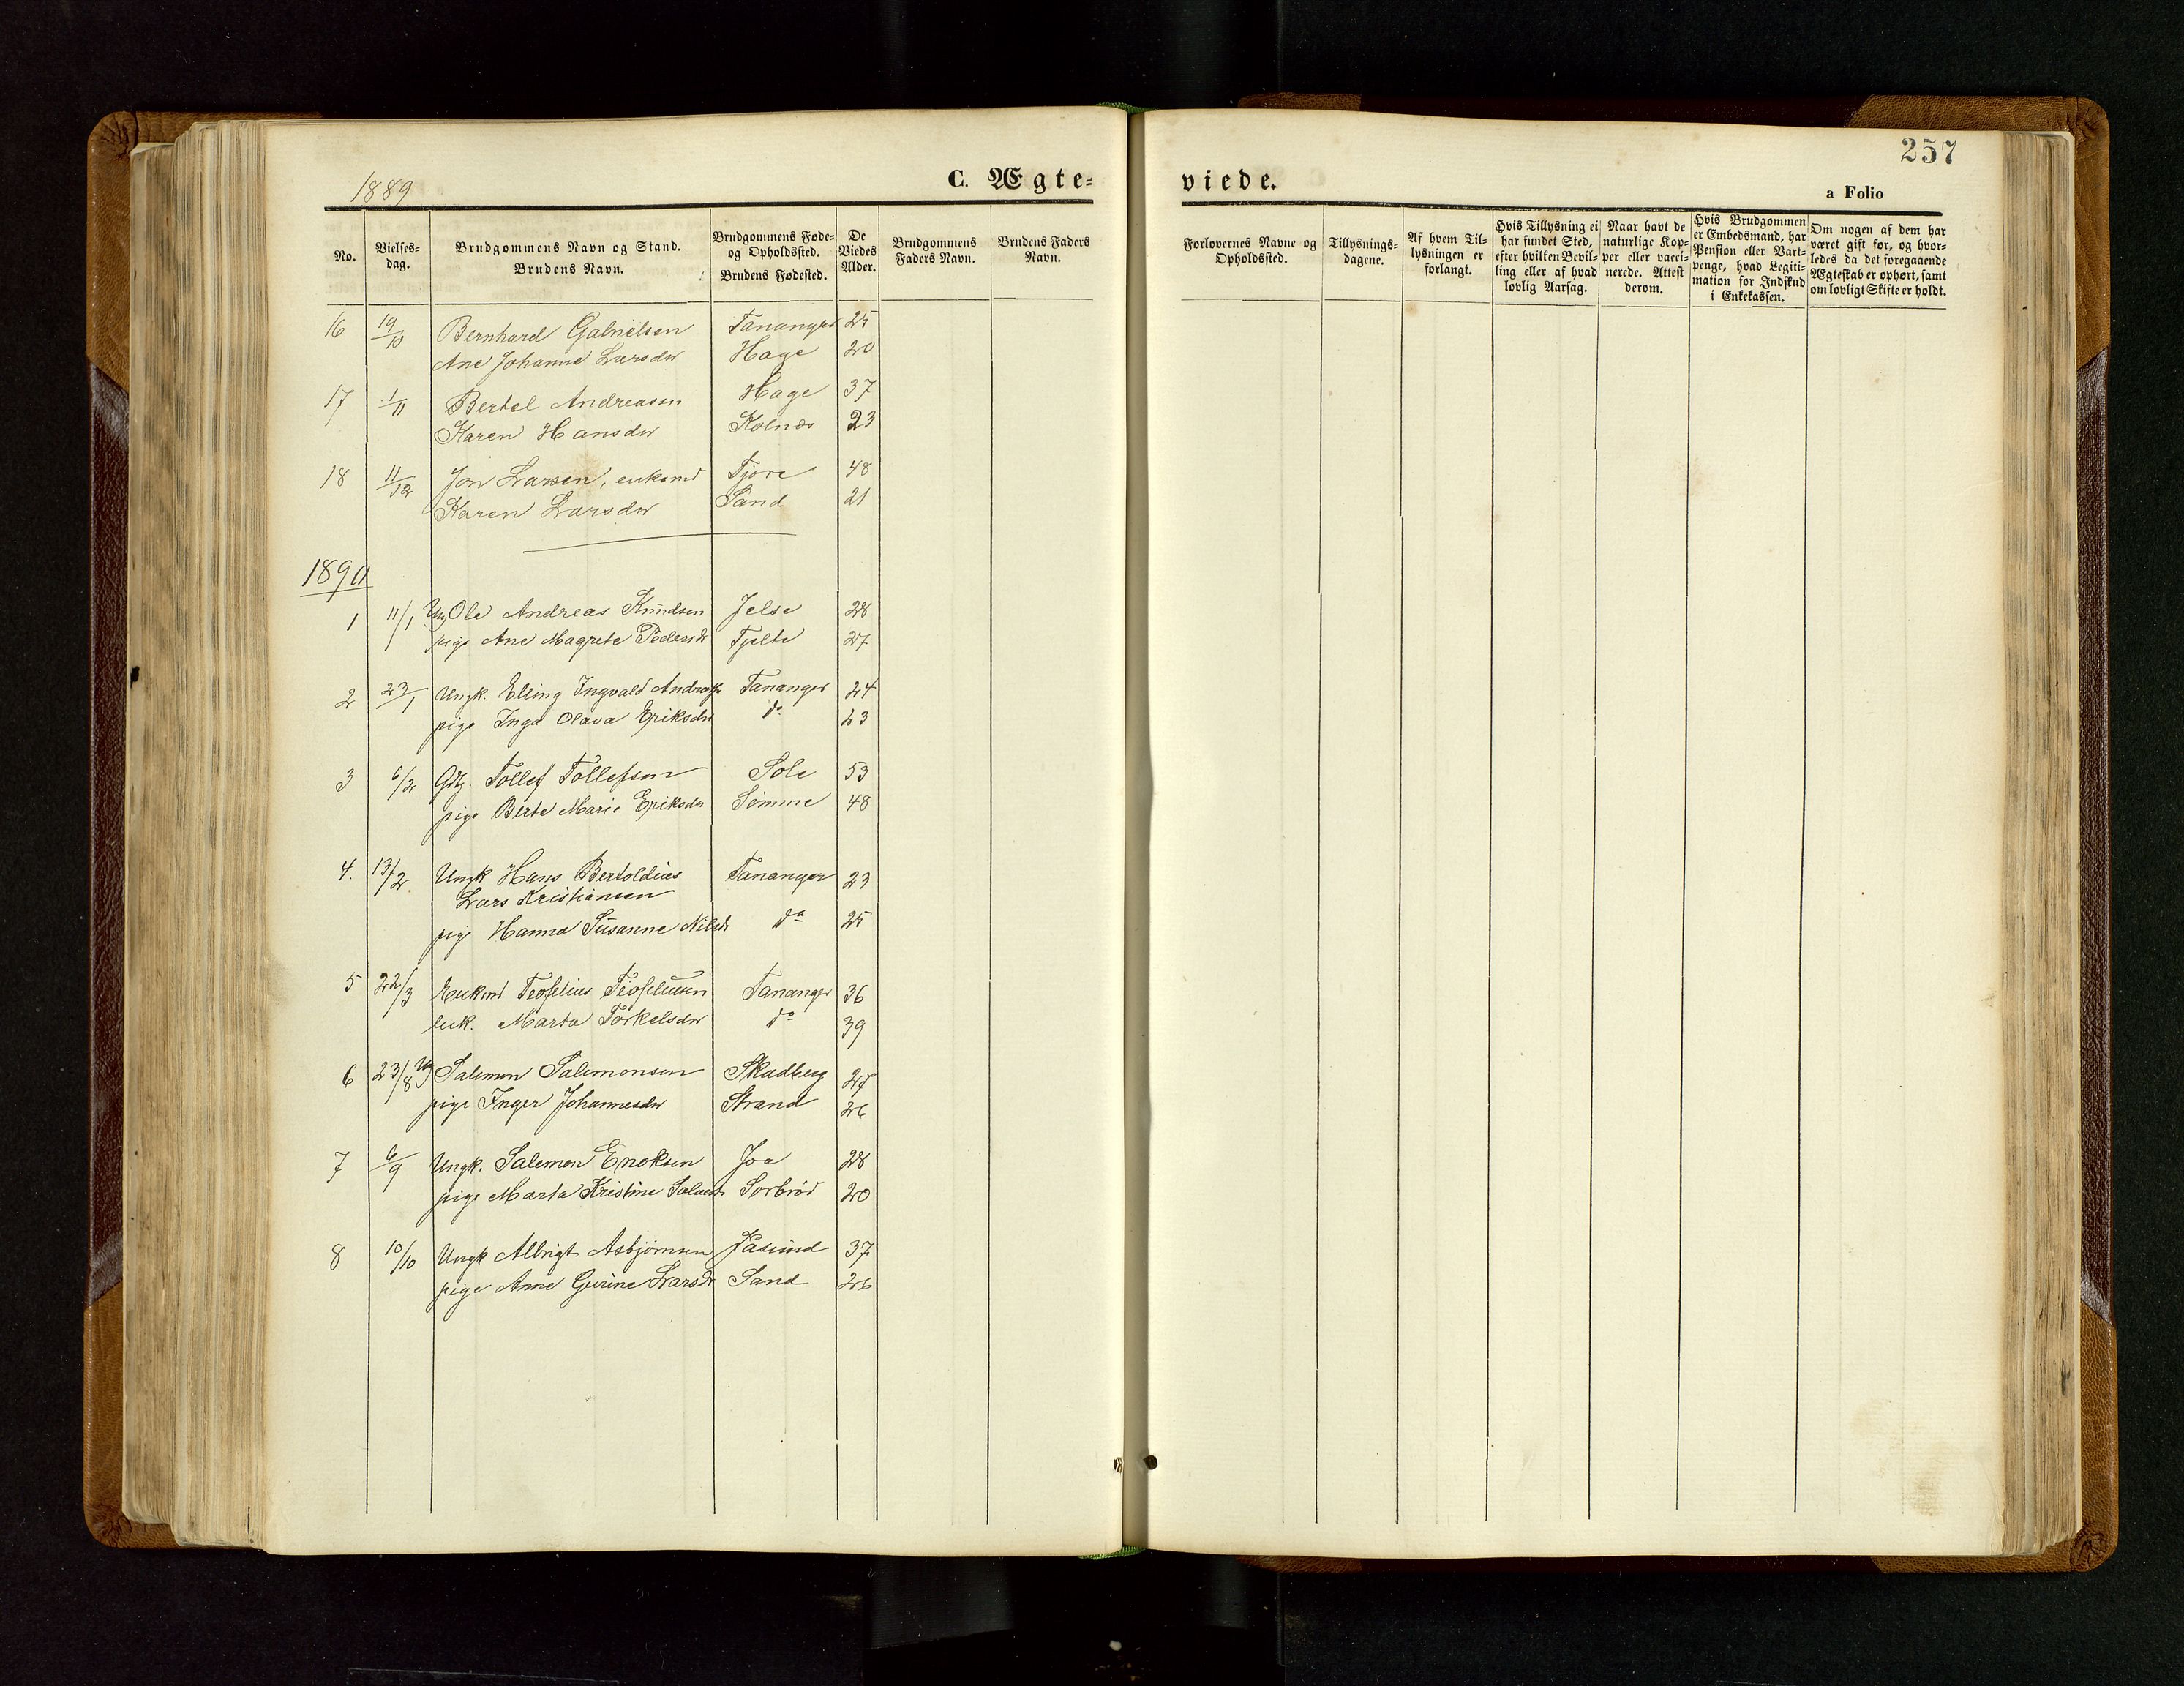 257
1889
C. Ægte-
viede.
a Folio
No.
Vielses-
dag.
Brudgommens Navn og Stand.
Brudens Navn.
Brudgommens Føde-
og Opholdssted.
Brudens Fødested.
De
Viedes
Alder.
Brudgommens
Faders Navn.
Brudens Faders
Navn.
Forlovernes Navne og
Opholdssted.
Tillysnings-
dagene.
Af hvem Til-
lysningen er
forlangt.
Hvis Tillysning ei
har fundet Sted,
efter hvilken Bevil-
ling eller af hvad
lovlig Aarsag.
Naar havt de
naturlige Kop-
per eller vacci-
nerede. Attest
derom.
Hvis Brudgommen
er Embedsmand, har
Pension eller Vart-
penge, hvad Legiti-
mation for Indskud
i Enkekassen.
Om nogen af dem har
været gift før, og hvor-
ledes da det foregaaende
Ægteskab er ophørt, samt
om lovligt Skifte er holdt.
16 19/10 Bernhard Gabrielsen Tananger 25
Ane Johanne Larsdtr Hage 20
17 1/11 Bertel Andreasen Hage 37
Karen Hansdtr Kolnes 23
18 11/12 Jon Larsen, enkemd Tjore 48
Karen Larsdtr Sand 21
1890
1 11/1 Ung Ole Andreas Knudsen Jelse 28
pige Ane Magrete Pedersdr Tjelte 27
2 23/1 Ungk. Elling Ingvald Tananger 24
pige Inga Olava Eriksdtr do 23
3 6/2 Gdbg. Tollef Tollefsen Sole 53
pige Berte Marie Eriksdtr Sømme 48
4. 13/2 Ungk Hans Bertoldius Tananger 23
Lars Kristiansen
pige Hanna Susanne Nilsdr do 25
5 22/3 Enkemd Teofelius Teofeliusen Tananger 36
enk. Marta Torkelsdtr do 39
6 23/8 Ung Salemon Salemonsen Skadberg 27
pige Inger Johannesdtr Strand 26
7 6/9 Ungk. Salemon Enoksen Joa 28
pige Marta Kristine Sorbrød 20
8 10/10 Ungk Albrigt Asbjørnsen Jåsund 37
pige Anne Gurine Larsdr Sand 26